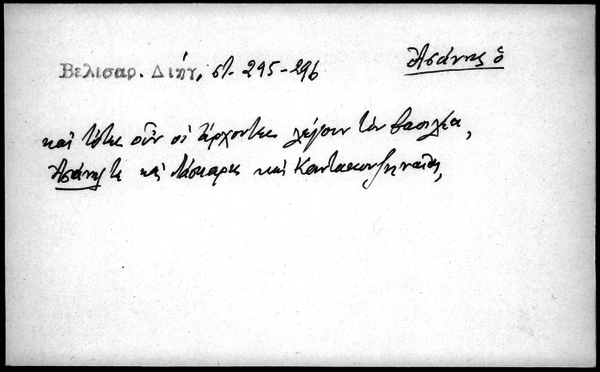 Βελισαρ. Διήγ, στ. 295-296
Ἀσάνης ὁ
καὶ τότες οὖν οἱ ἄρχοντες λέγουν τὸν βασιλέα,
Ἀσάνης τε καὶ Λάσκαρες καὶ Κανταкουζηναῖοι,